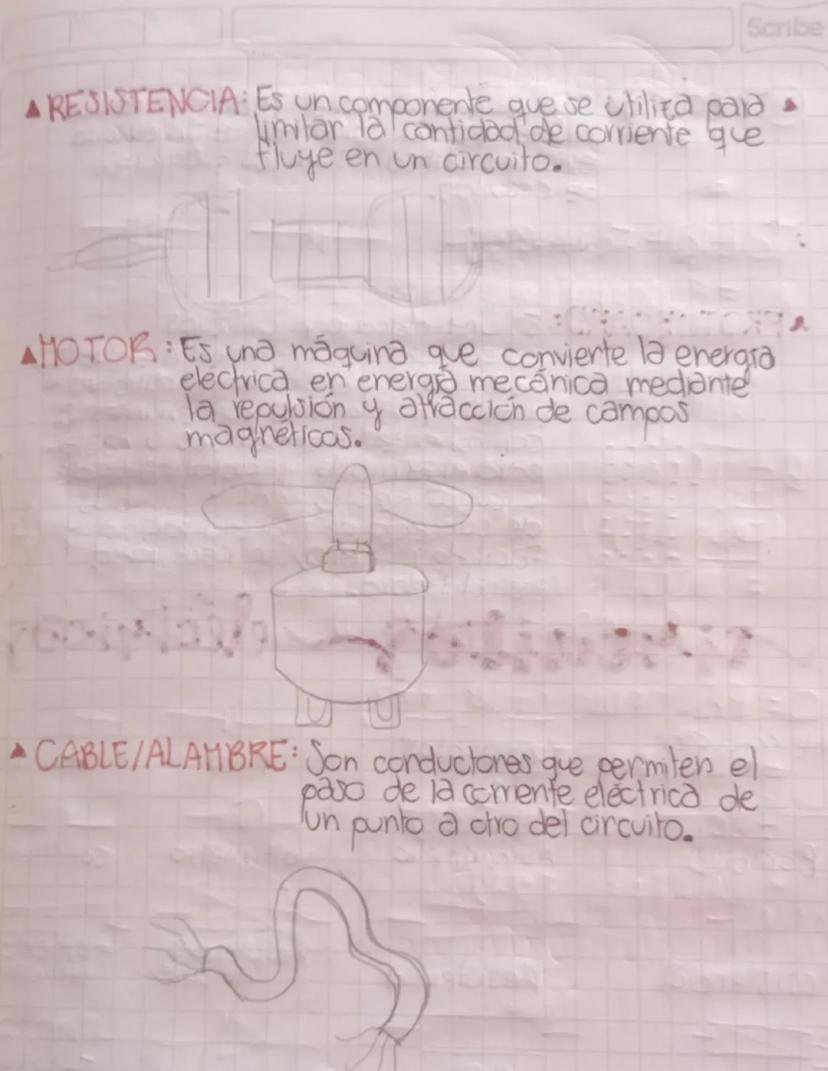 Scribe
▲ RESISTENCIA: Es un componente que se utiliza para ▲
limitar la cantidad de corriente que
fluye en un circuito.
▲ MOTOR: Es una máquina que convierte la energía
eléctrica en energía mecánica mediante
la repulsión y atracción de campos
magnéticos.
▲ CABLE/ALAMBRE: Son conductores que permiten el
paso de la corriente eléctrica de
un punto a otro del circuito.